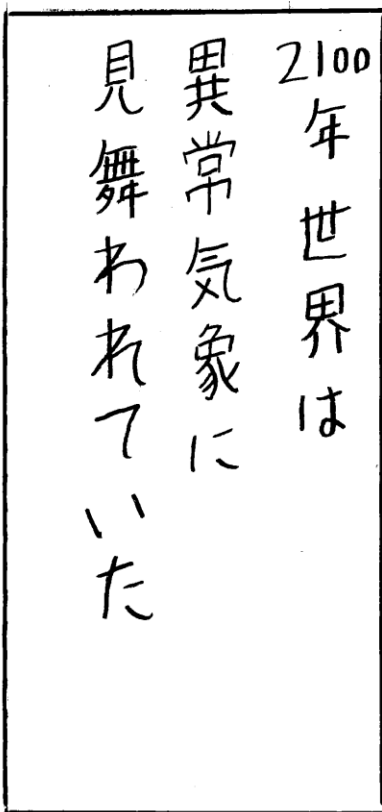 2100年 世界は
異常気象に
見舞われていた